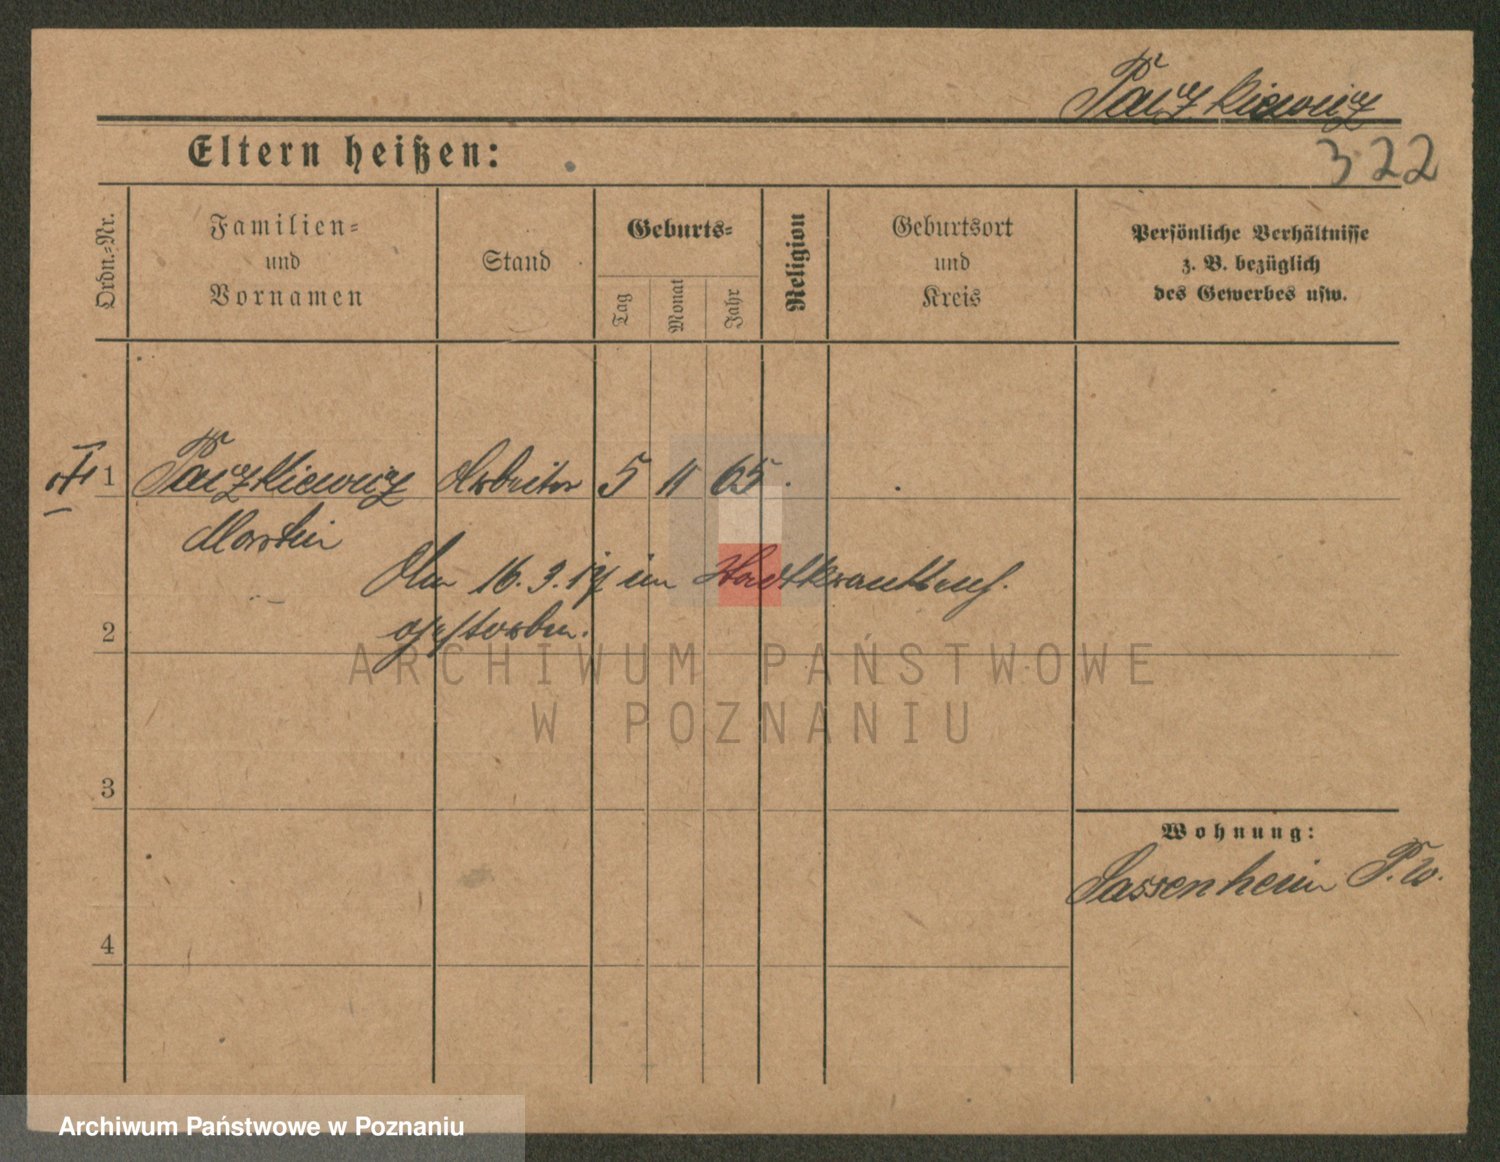 Paczkiewicz
322
Eltern heißen:
Ordn.=Nr.
Familien=
und
Vornamen
Stand
Geburts=
Tag
Monat
Jahr
Religion
Geburtsort
und
Kreis
Persönliche Verhältnisse
z. B. bezüglich
des Gewerbes usw.
1 Paczkiewicz Arbeiter 5 11 65.
Martin
Am 16.3.17 im Stadtkrankenh.
gestorben.
2
ARCHIWUM PAŃSTWOWE
W POZNANIU
3
Wohnung:
Sassenheim P.W.
4
Archiwum Państwowe w Poznaniu